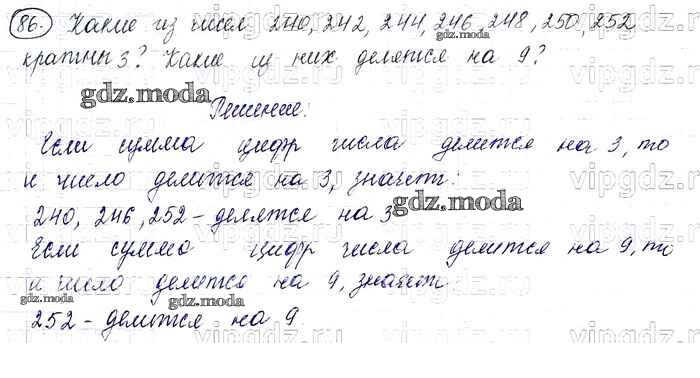 86. Какие из чисел 240, 242, 244, 246, 248, 250, 252
кратны 3? Какие из них делятся на 9?
gdz.moda
Решение:
Если сумма цифр числа делится на 3, то
и число делится на 3, значит:
gdz.moda
240, 246, 252 - делятся на 3
Если сумма цифр числа делится на 9, то
и число делится на 9, значит
gdz.moda
gdz.moda
252 - делится на 9
vipgdz.ru